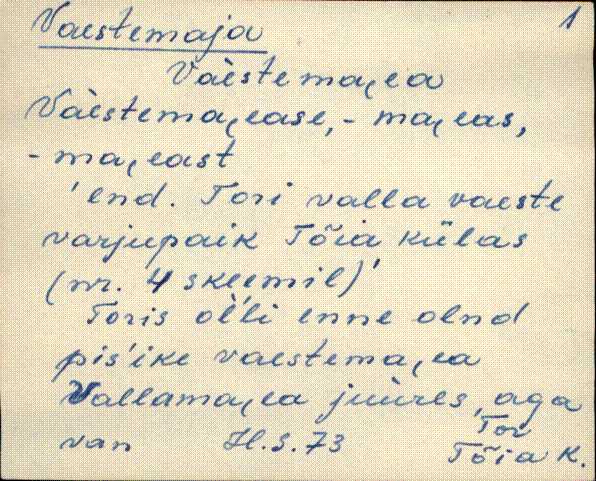 Vaestemaja 1
Vàestema,ea
Vàestema,ease, - ma,eas,
- ma,east
'end. Tori valla vaeste
varjupaik Tõia külas
(nr. 4 skeemil)'
Toris ol̀li enne olnd
pis'ike vaestema,ea
Vallama,ea juùres, aga
van H.S. 73 Tor
Tõia K.